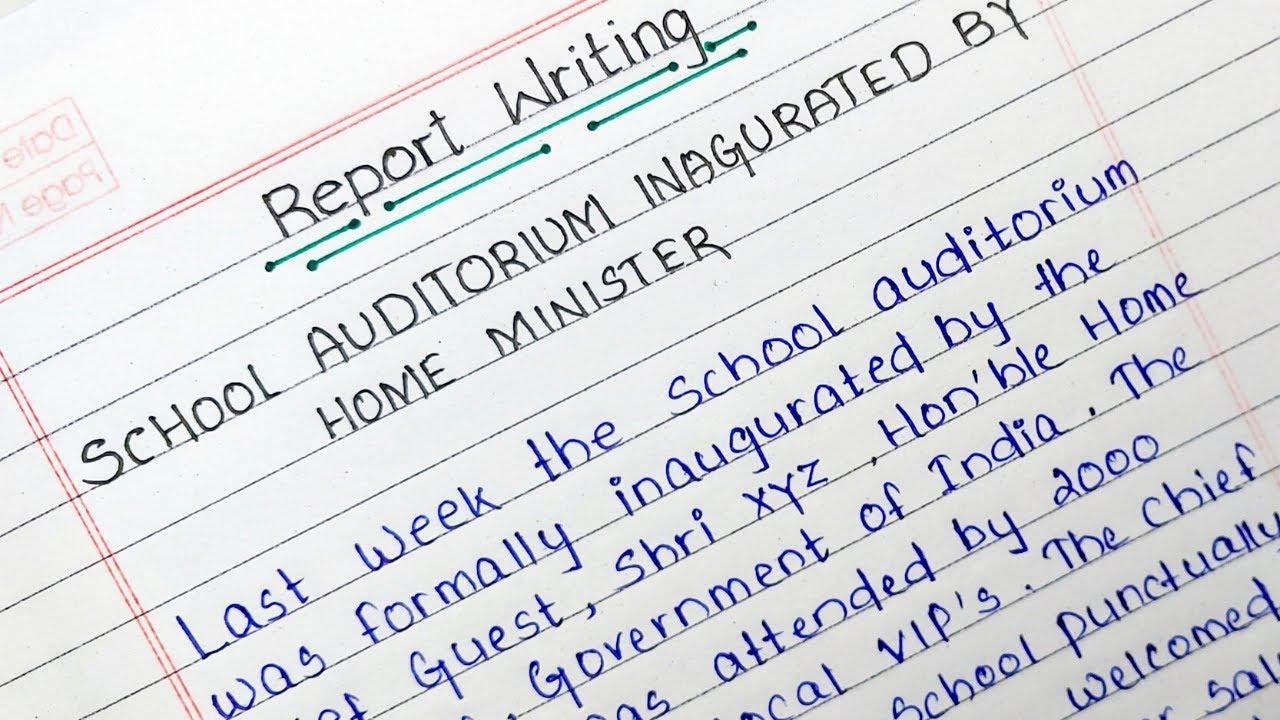 Date
Page N
Report Writing
SCHOOL AUDITORIUM INAGURATED BY
HOME MINISTER
Last week the school auditorium
was formally inaugurated by the
Guest, Shri XYZ, Hon'ble Home
Government of India. The
attended by 2000
VIP's. The Chief
school punctually
welcomed